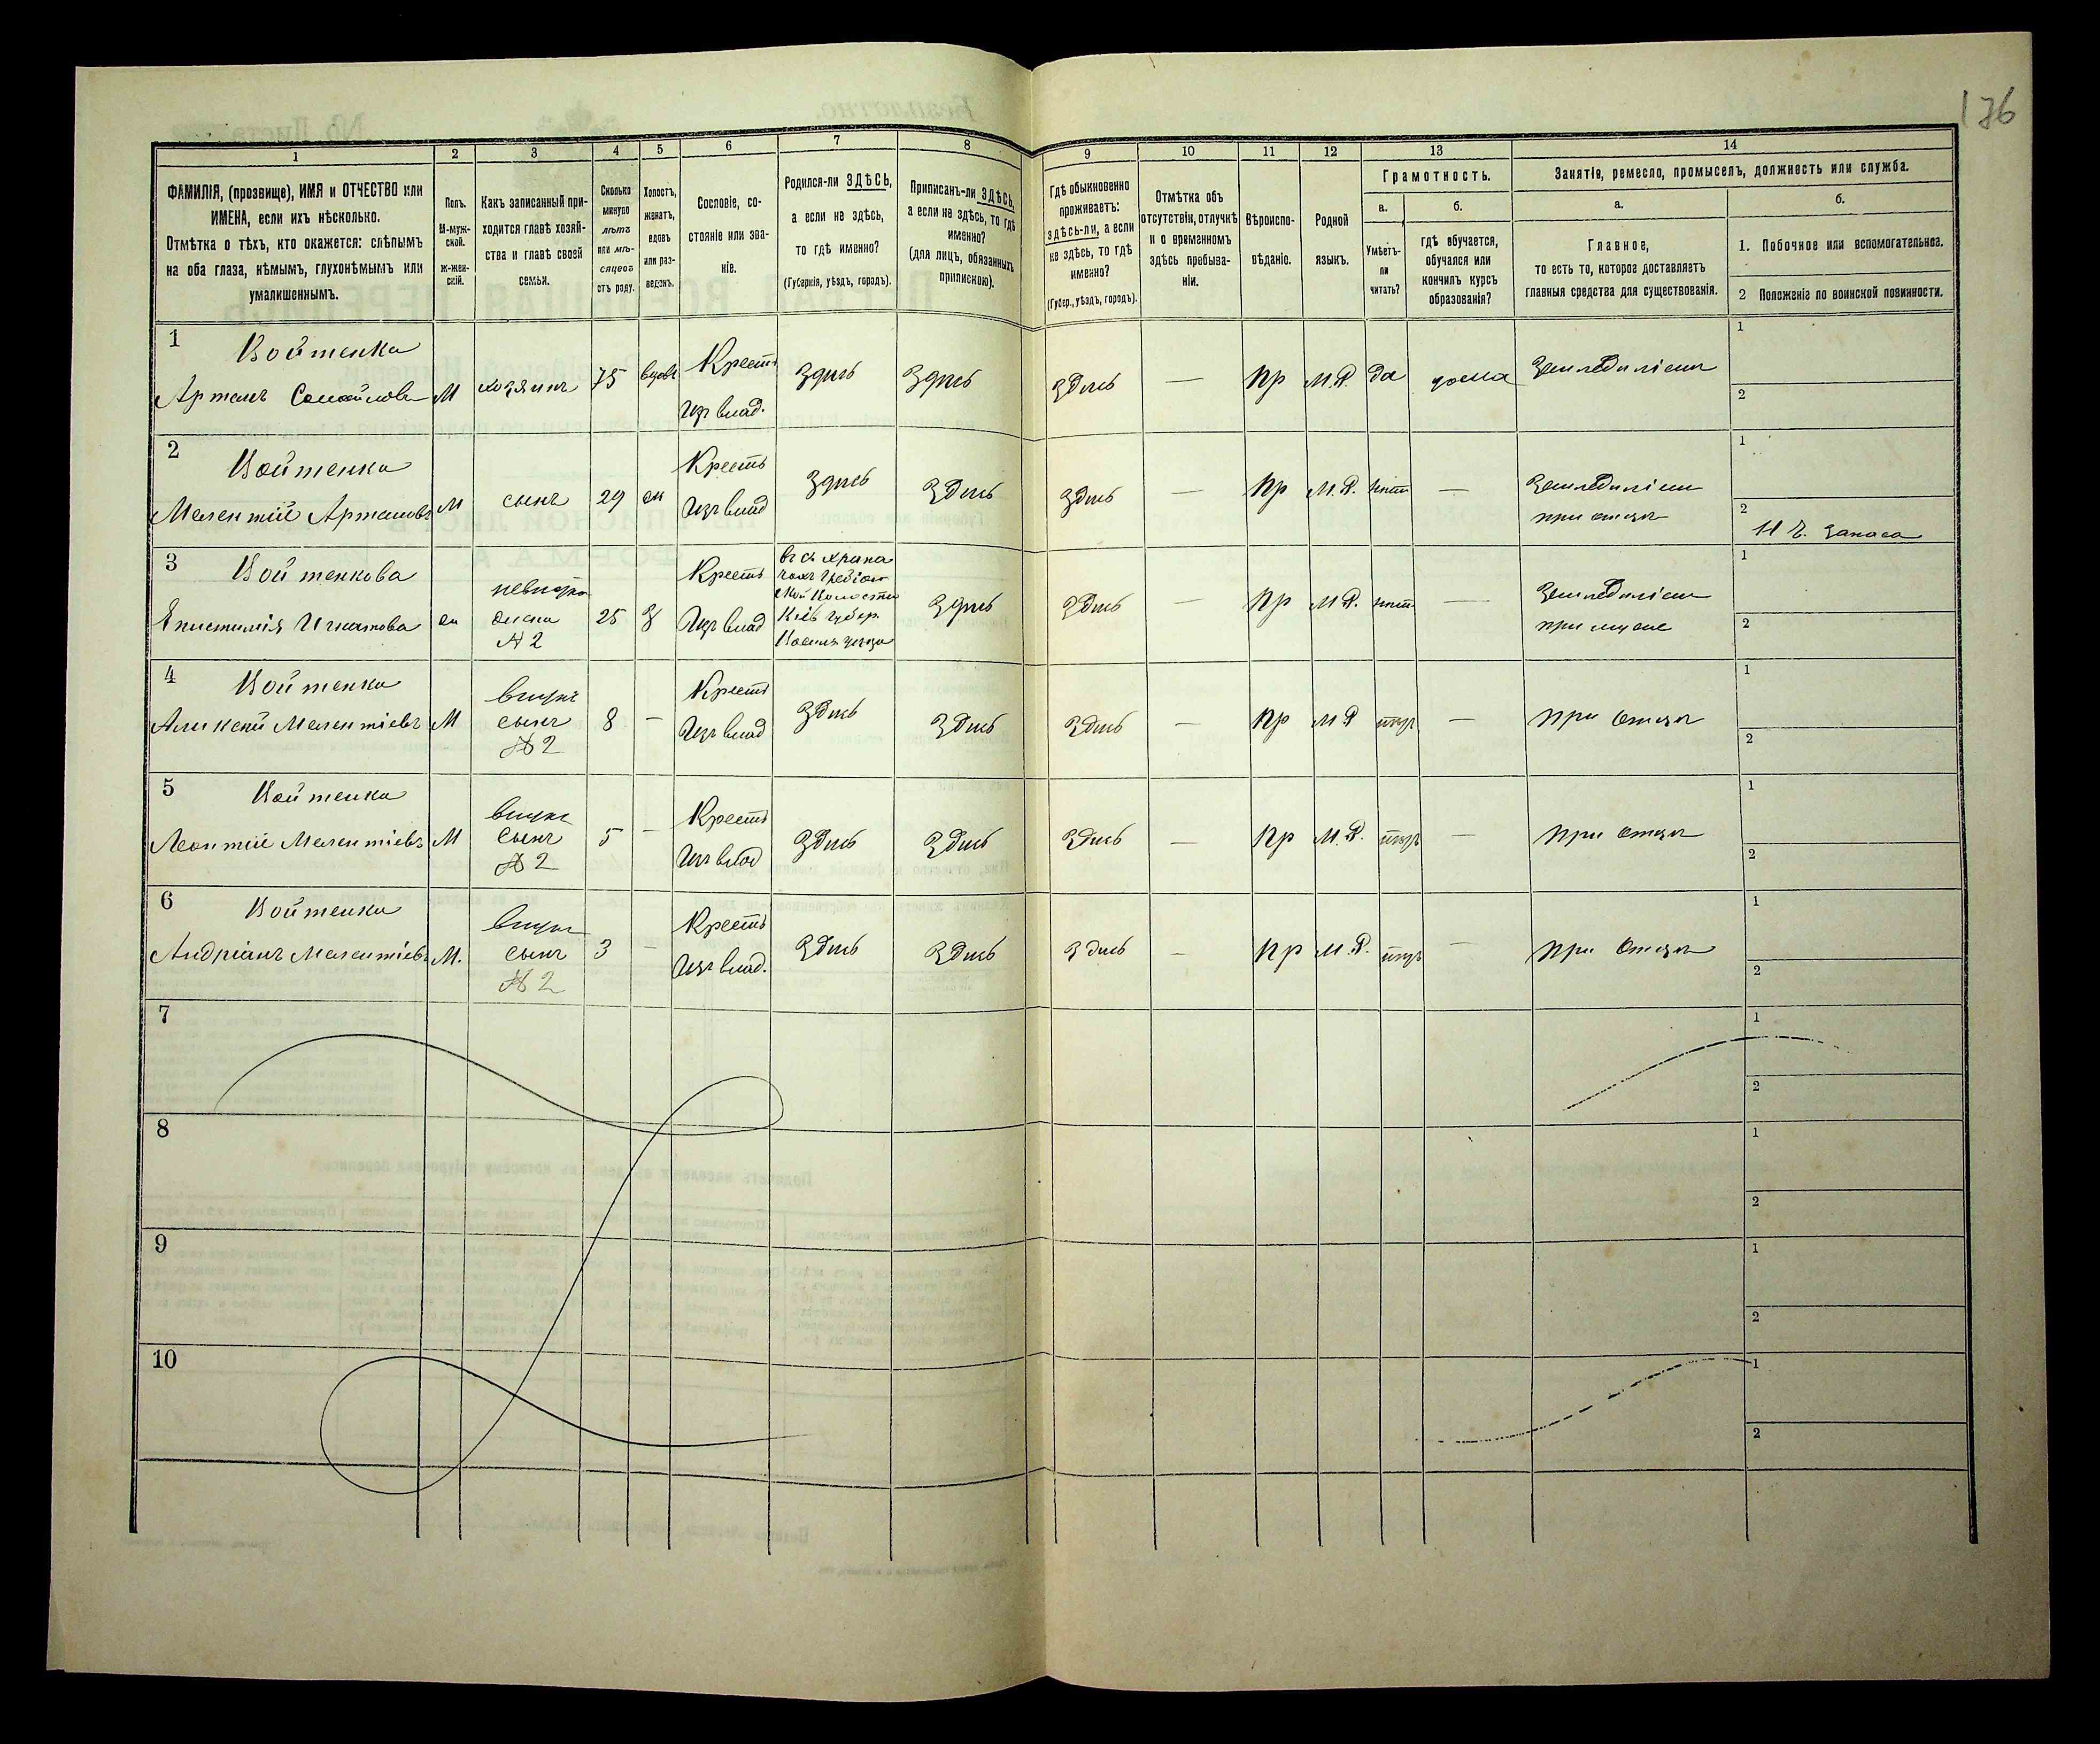 176
1 2 3 4 5 6 7 8 9 10 11 12 13 14
ФАМИЛІЯ, (прозвище), ИМЯ и ОТЧЕСТВО или
ИМЕНА, если ихъ нѣсколько.
Отмѣтка о тѣхъ, кто окажется: слѣпымъ
на оба глаза, нѣмымъ, глухонѣмымъ или
умалишеннымъ.
Полъ.
М-муж-
ской.
ж-жен-
скій.
Какъ записанный при-
ходится главѣ хозяй-
ства и главѣ своей
семьи.
Сколько
минуло
лѣтъ
или мѣ-
сяцевъ
отъ роду.
Холостъ,
женатъ,
вдовъ
или раз-
веденъ.
Сословіе, со-
стояніе или зва-
ніе.
Родился-ли ЗДѢСЬ,
а если не здѣсь,
то гдѣ именно?
(Губернія, уѣздъ, городъ).
Приписанъ-ли ЗДѢСЬ,
а если не здѣсь, то гдѣ
именно?
(для лицъ, обязанныхъ
припискою).
Гдѣ обыкновенно
проживаетъ:
здѣсь-ли, а если
не здѣсь, то гдѣ
именно?
(Губер., уѣздъ, городъ).
Отмѣтка объ
отсутствіи, отлучкѣ
и о временномъ
здѣсь пребыва-
ніи.
Вѣроиспо-
вѣданіе.
Родной
языкъ.
Грамотность.
а.
Умѣетъ-
ли
читать?
б.
гдѣ обучается,
обучался или
кончилъ курсъ
образованія?
Занятіе, ремесло, промыселъ, должность или служба.
а.
Главное,
то есть то, которое доставляетъ
главныя средства для существованія.
б.
1. Побочное или вспомогательное.
2 Положеніе по воинской повинности.
1 Войтенко
Артемъ Самойловъ М хозяинъ 75 вдовъ Крестъ
Изъ влад. Здѣсь Здѣсь Здѣсь — Пр М.Р. Да дома Земледѣліемъ 1
2
2 Войтенко
Мелентій Артемовъ М сынъ 29 ж Крестъ
Изъ влад Здѣсь Здѣсь Здѣсь — Пр М.Р. нѣтъ — Земледѣліем
при отцѣ 1
2
Н Ч. Запаса
3 Войтенкова
Епистимія Игнатова ж невѣстка
жена
№ 2 25 З Крестъ
Изъ влад
Кіев губер.
Здѣсь Здѣсь — Пр М.Р. нѣт — Земледѣліем
при муже 1
2
4 Войтенко
Алексѣй Мелентіевъ М внукъ
сынъ
№ 2 8 — Крестъ
Изъ влад Здѣсь Здѣсь Здѣсь — Пр М Р — при отцѣ 1
2
5 Войтенко
Леонтій Мелентіевъ М внукъ
сынъ
№ 2 5 — Крестъ
Изъ влад Здѣсь Здѣсь Здѣсь — Пр М.Р. — при отцѣ 1
2
6 Войтенко
Андріанъ Мелентіевъ М. внукъ
сынъ
№ 2 3 — Крестъ
Изъ влад. Здѣсь Здѣсь Здѣсь — Пр М.Р. — При Отцѣ 1
2
7 1
2
8 1
2
9 1
2
10 1
2